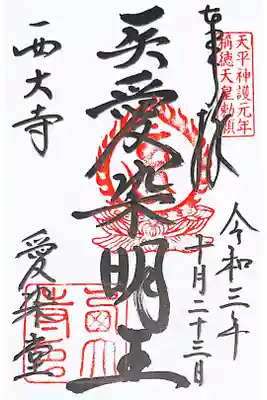 奉拝
天平神護元年
稱徳天皇勅願
令和三年
十月二十三日
愛染明王
西大寺
愛染堂